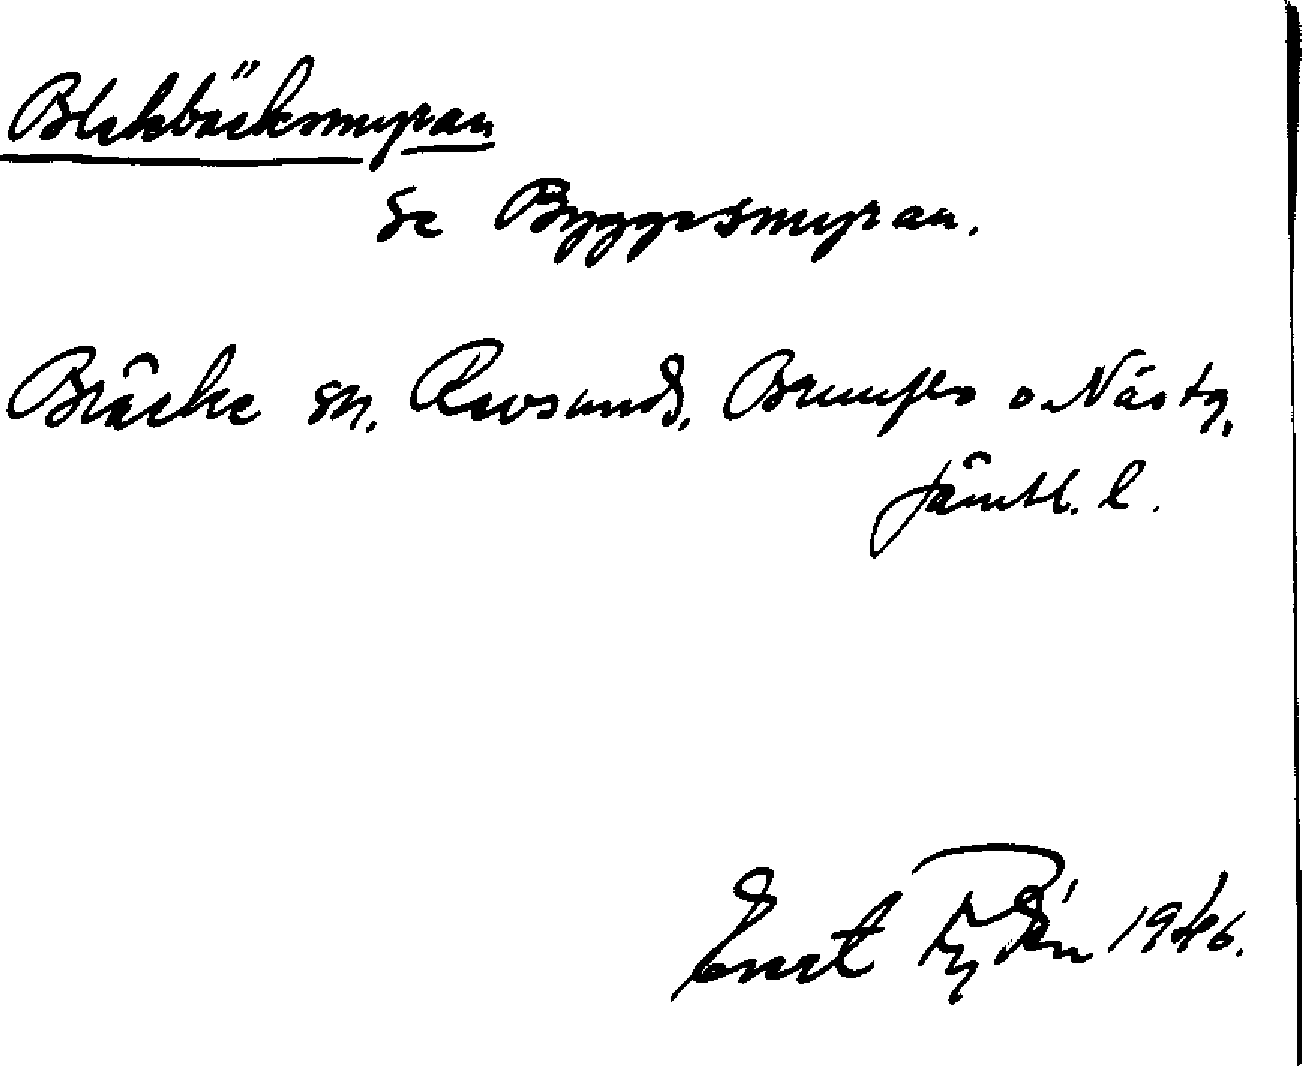 Blekbäcksmyran
se Byggesmyran.
Bräcke sn. Revsunds, Brunflo o. Näs tg,
Jämtl. l.
Enert Rydén 1946.